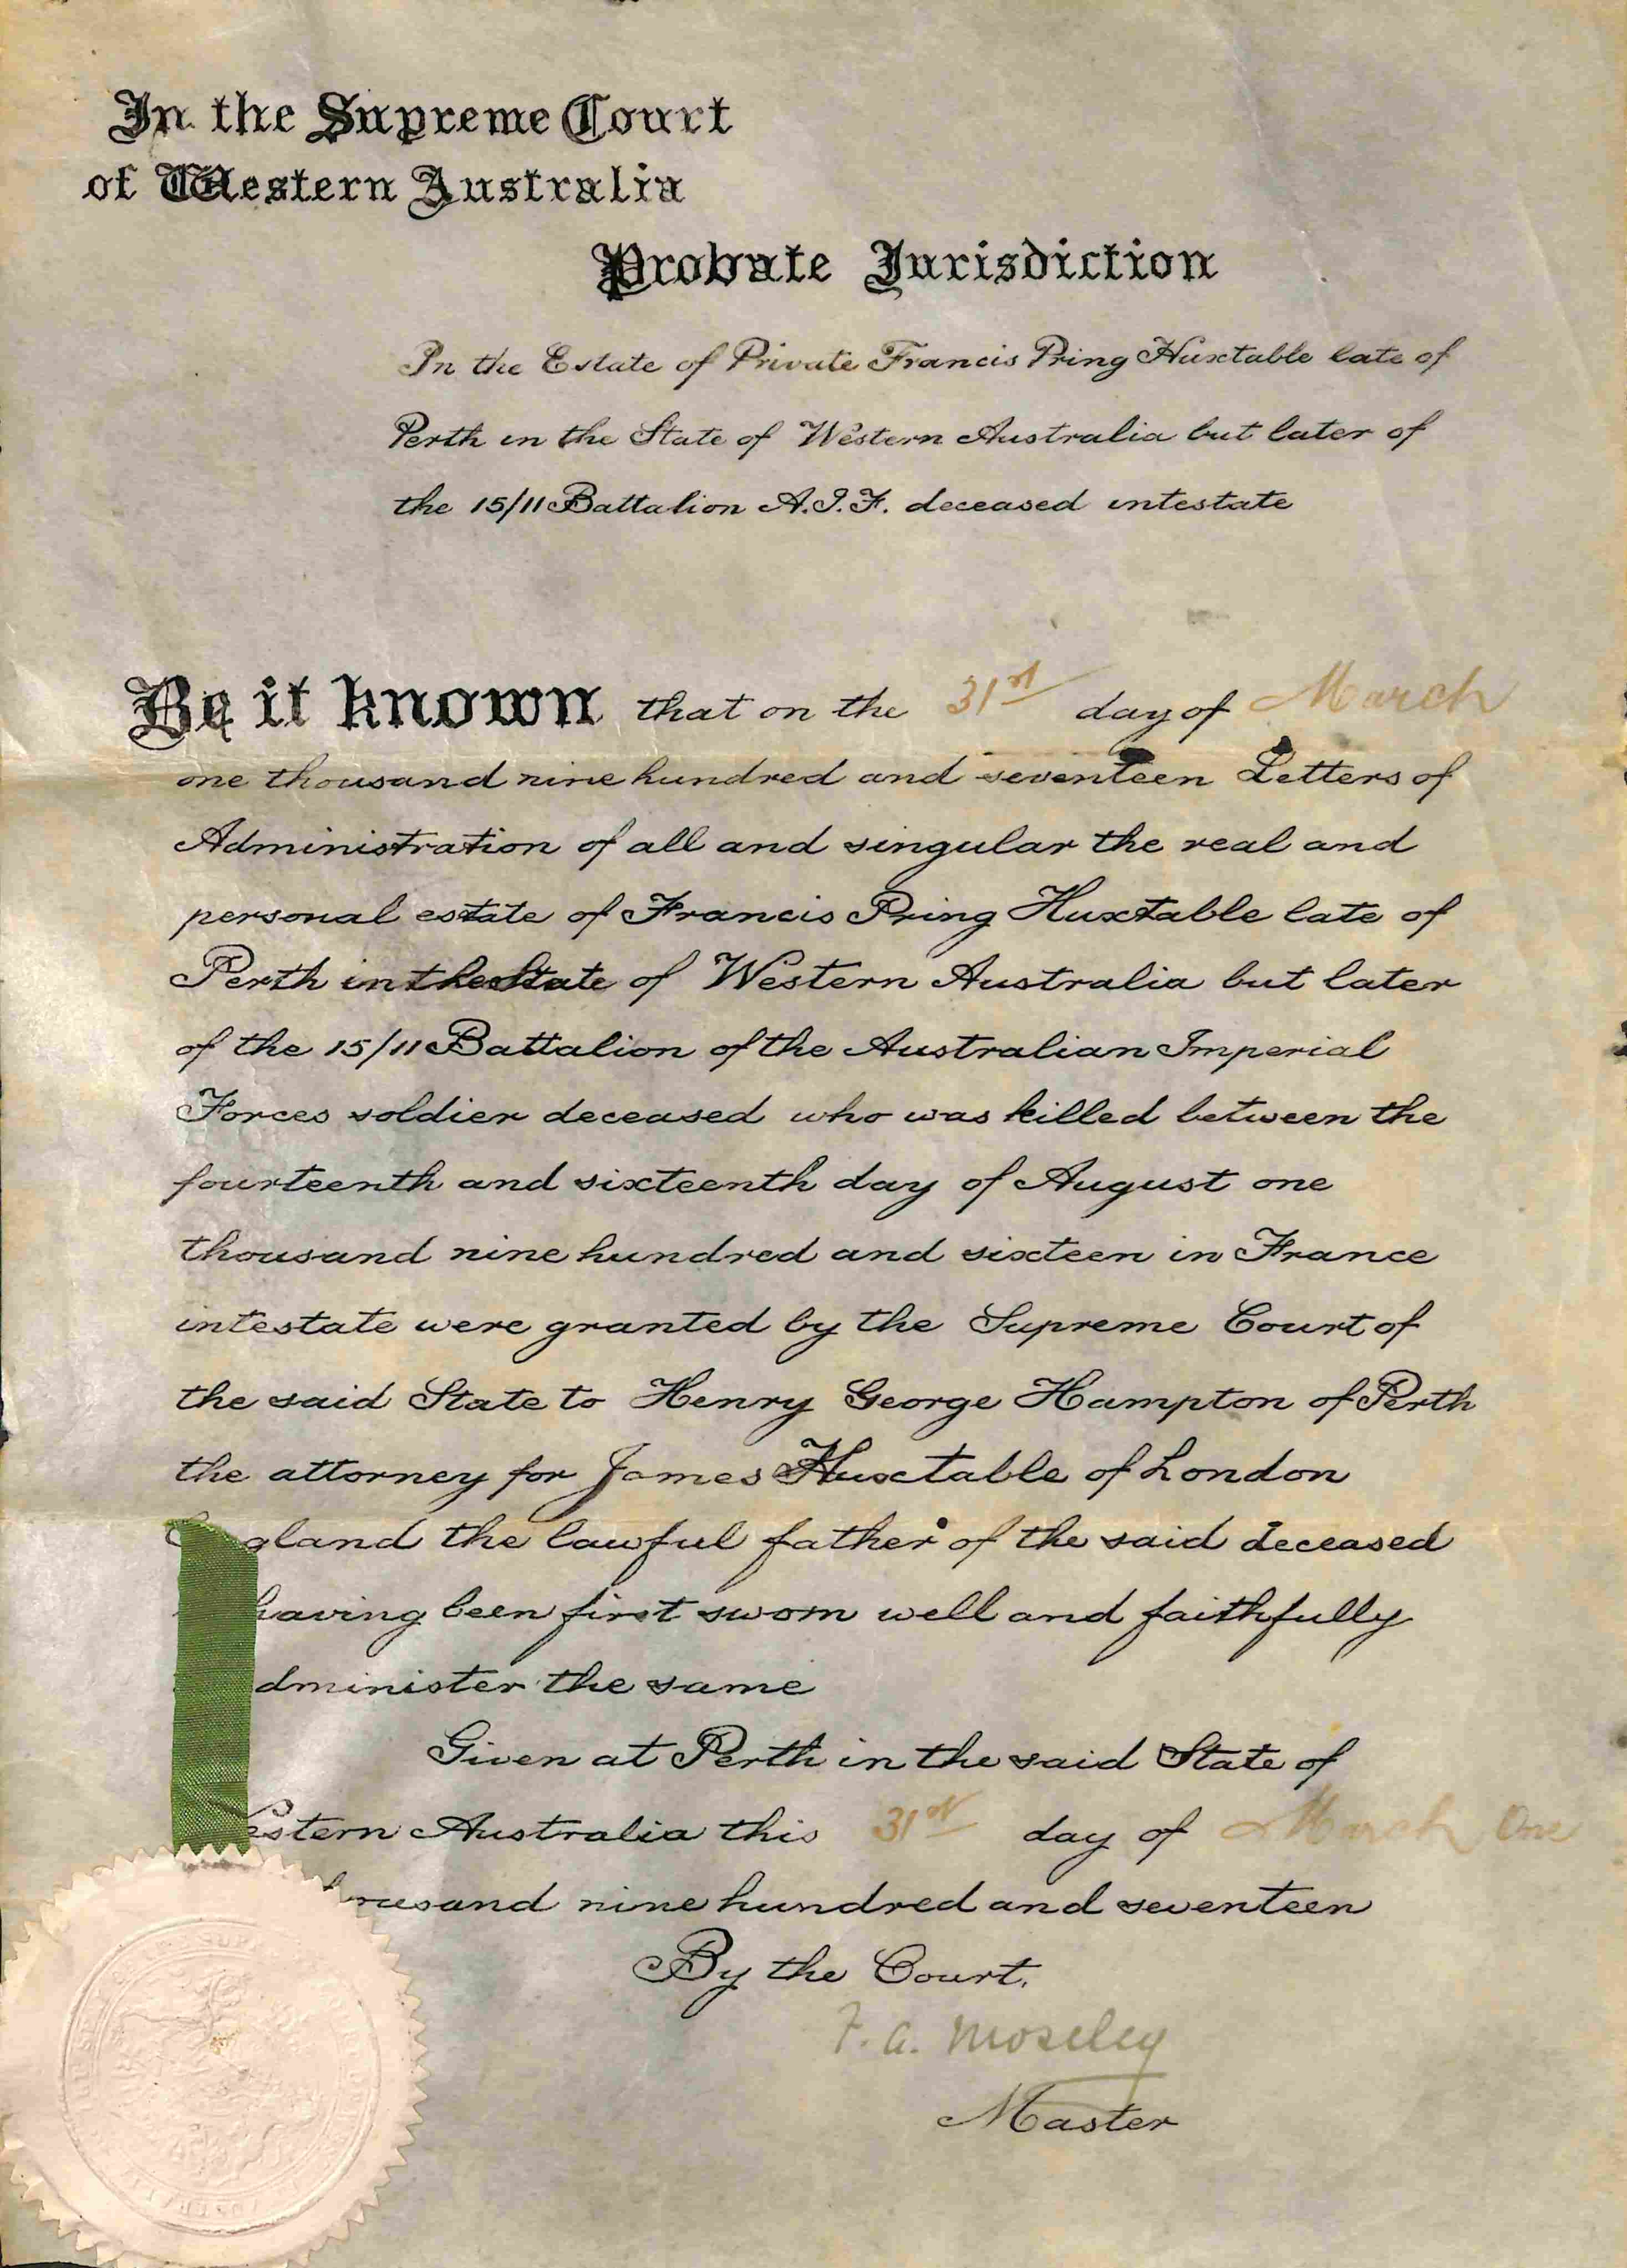 In the Supreme Court
of Western Australia
Probate Jurisdiction
In the Estate of Private Francis Pring Huxtable late of
Perth in the State of Western Australia but later of
the 15/11 Battalion A.I.F. deceased intestate
Be it known that on the 31st day of March
one thousand nine hundred and seventeen Letters of
Administration of all and singular the real and
personal estate of Francis Pring Huxtable late of
Perth in the State of Western Australia but later
of the 15/11 Battalion of the Australian Imperial
Forces soldier deceased who was killed between the
fourteenth and sixteenth day of August one
thousand nine hundred and sixteen in France
intestate were granted by the Supreme Court of
the said State to Henry George Hampton of Perth
the attorney for James Huxtable of London
gland the lawful father of the said deceased
having been first sworn well and faithfully
dminister the same
Given at Perth in the said State of
estern Australia this 31st day of March One
housand nine hundred and seventeen
By the Court.
F. A. Moseley
Master